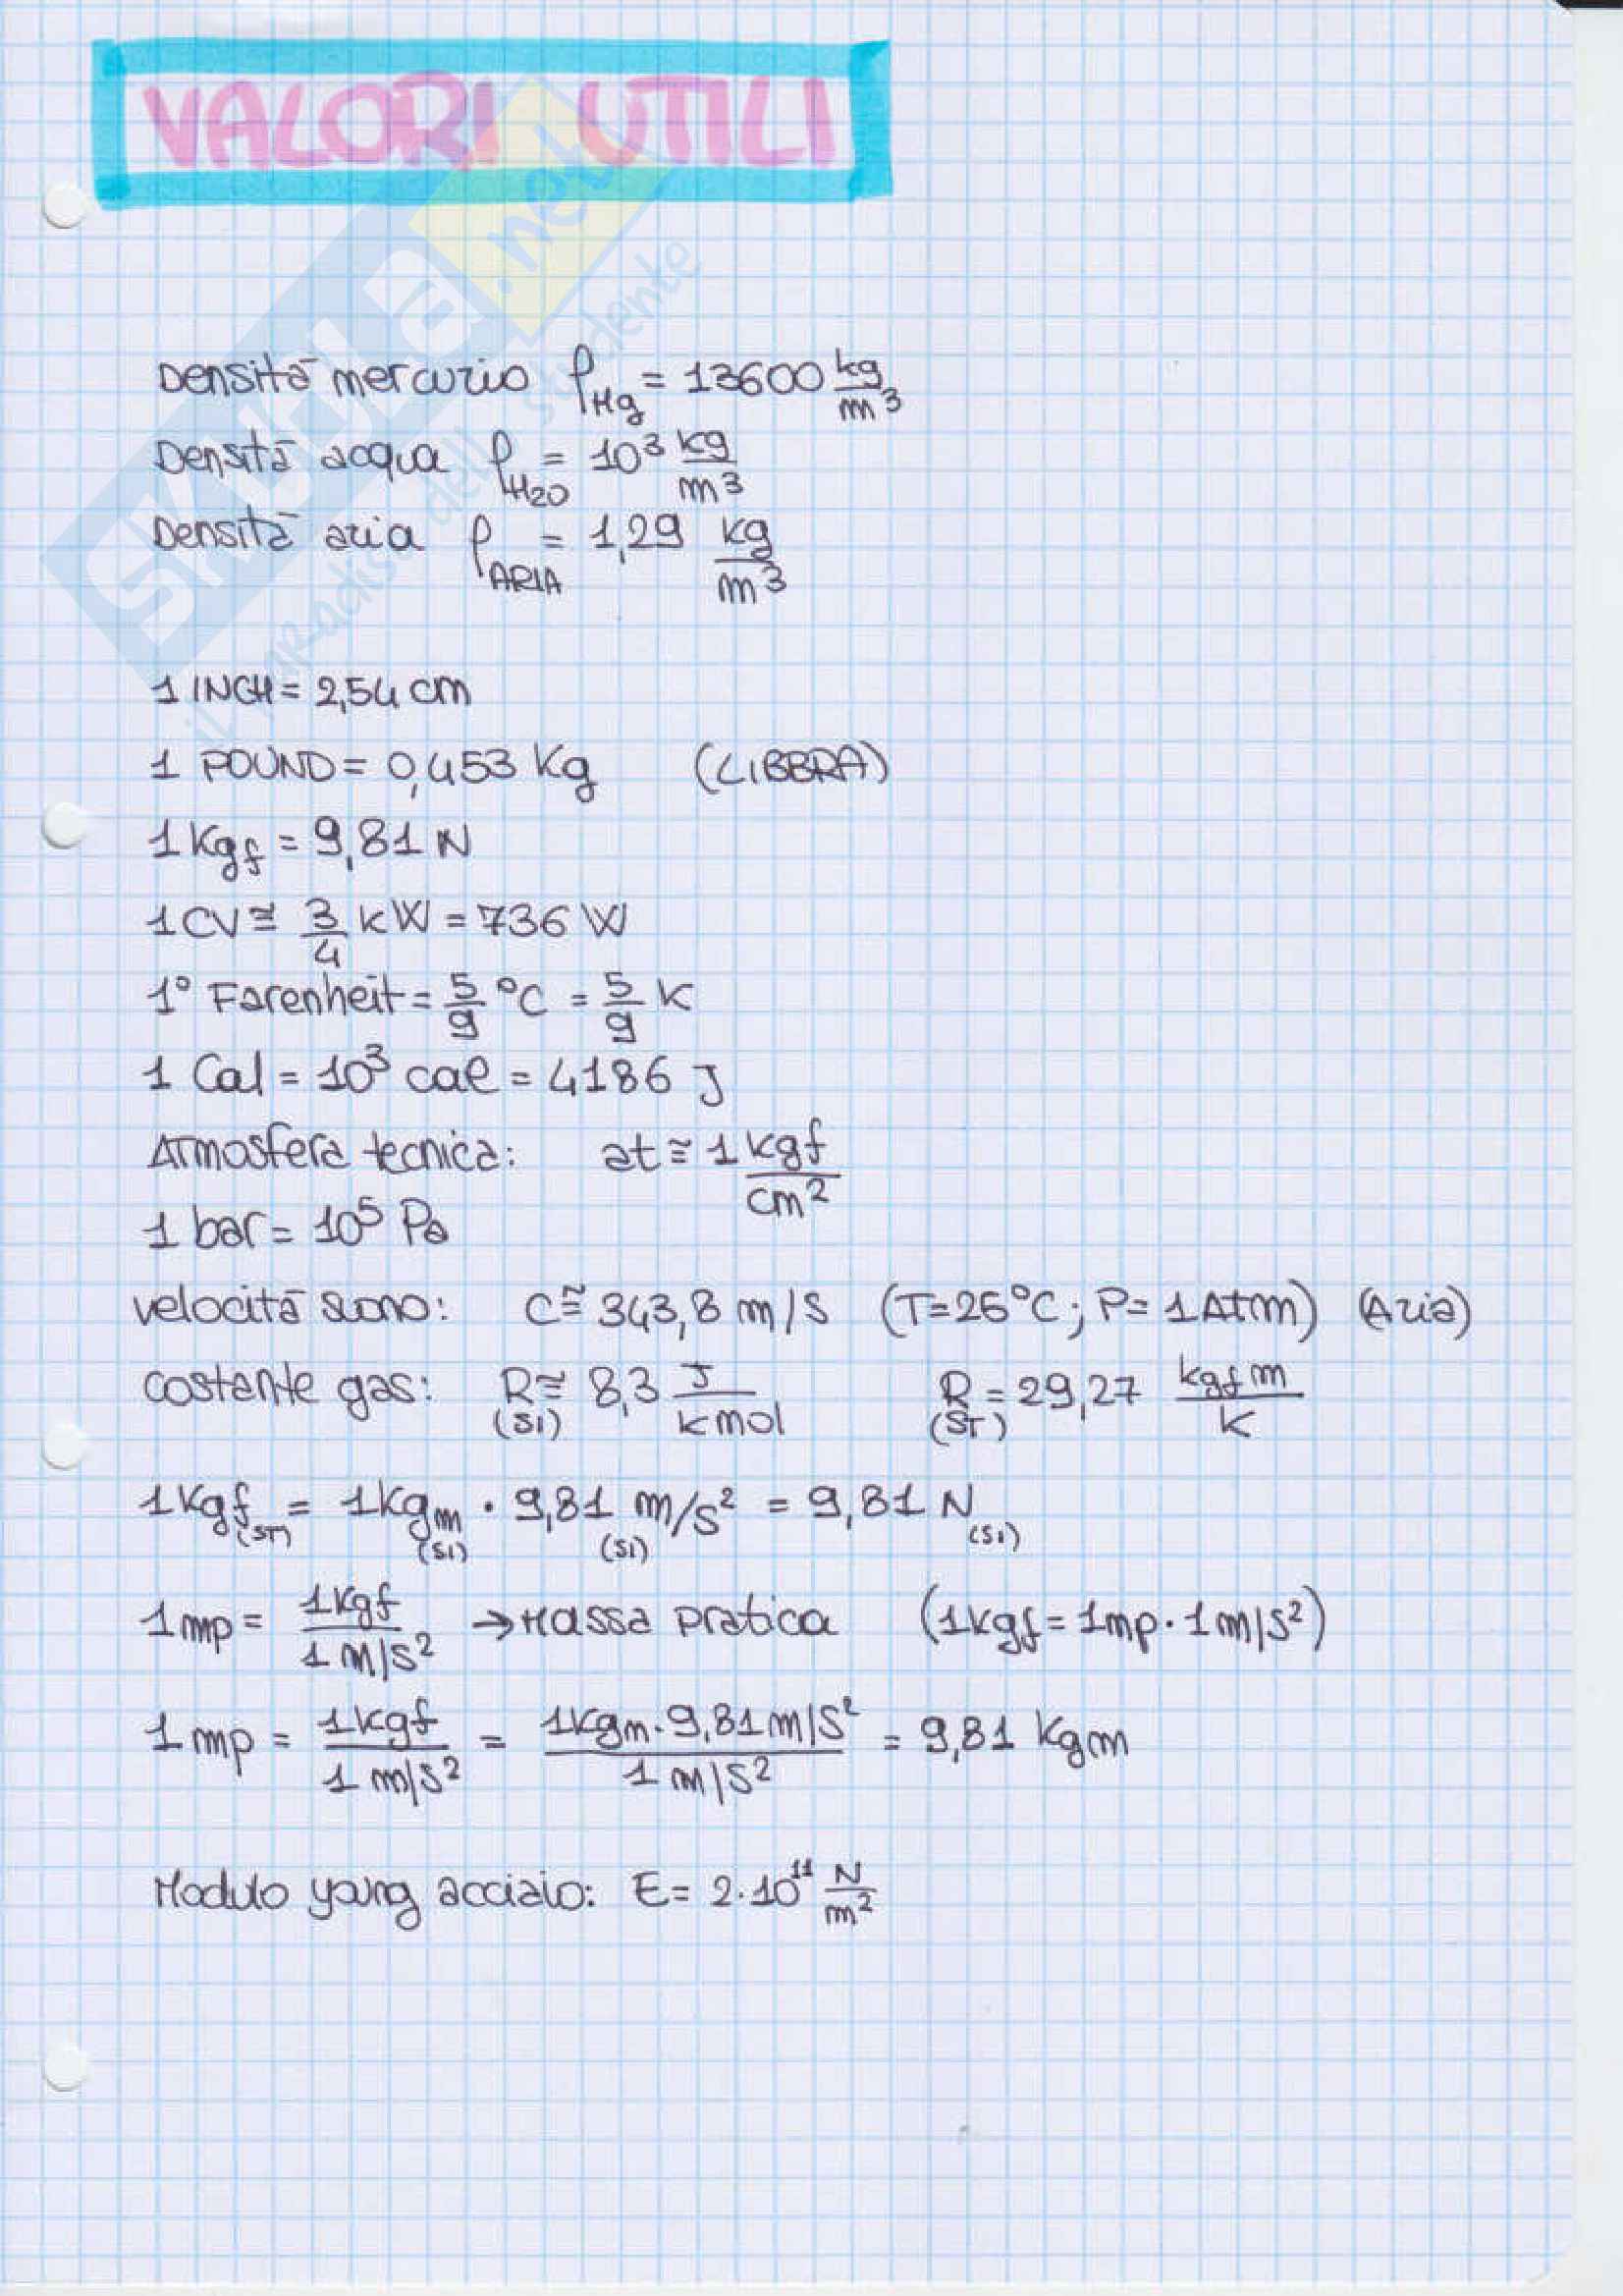 VALORI UTILI
SKUOLA.net
il paradiso dello studente
Densità mercurio ρHg = 13600 kg/m³
Densità acqua ρH2O = 10³ kg/m³
Densità aria ρARIA = 1,29 kg/m³
1 INCH = 2,54 cm
1 POUND = 0,453 Kg (LIBBRA)
1 Kgf = 9,81 N
1 CV ≅ 3/4 kW = 736 W
1° Farenheit = 5/9 °C = 5/9 K
1 Cal = 10³ cal = 4186 J
Atmosfera tecnica: at ≅ 1 kgf/cm²
1 bar = 10⁵ Pa
velocità suono: C ≅ 343,8 m/s (T=26°C; P= 1 Atm) (Aria)
costante gas: R(SI) ≅ 8,3 J/kmol R(ST) = 29,27 kgf m/K
1 Kgf(ST) = 1 kgm(SI) · 9,81 m/s²(SI) = 9,81 N(SI)
1 mp = 1 Kgf/1 m/s² → Massa pratica (1 kgf = 1 mp · 1 m/s²)
1 mp = 1 kgf/1 m/s² = 1 kgm · 9,81 m/s²/1 m/s² = 9,81 kgm
Modulo young acciaio: E = 2·10¹¹ N/m²